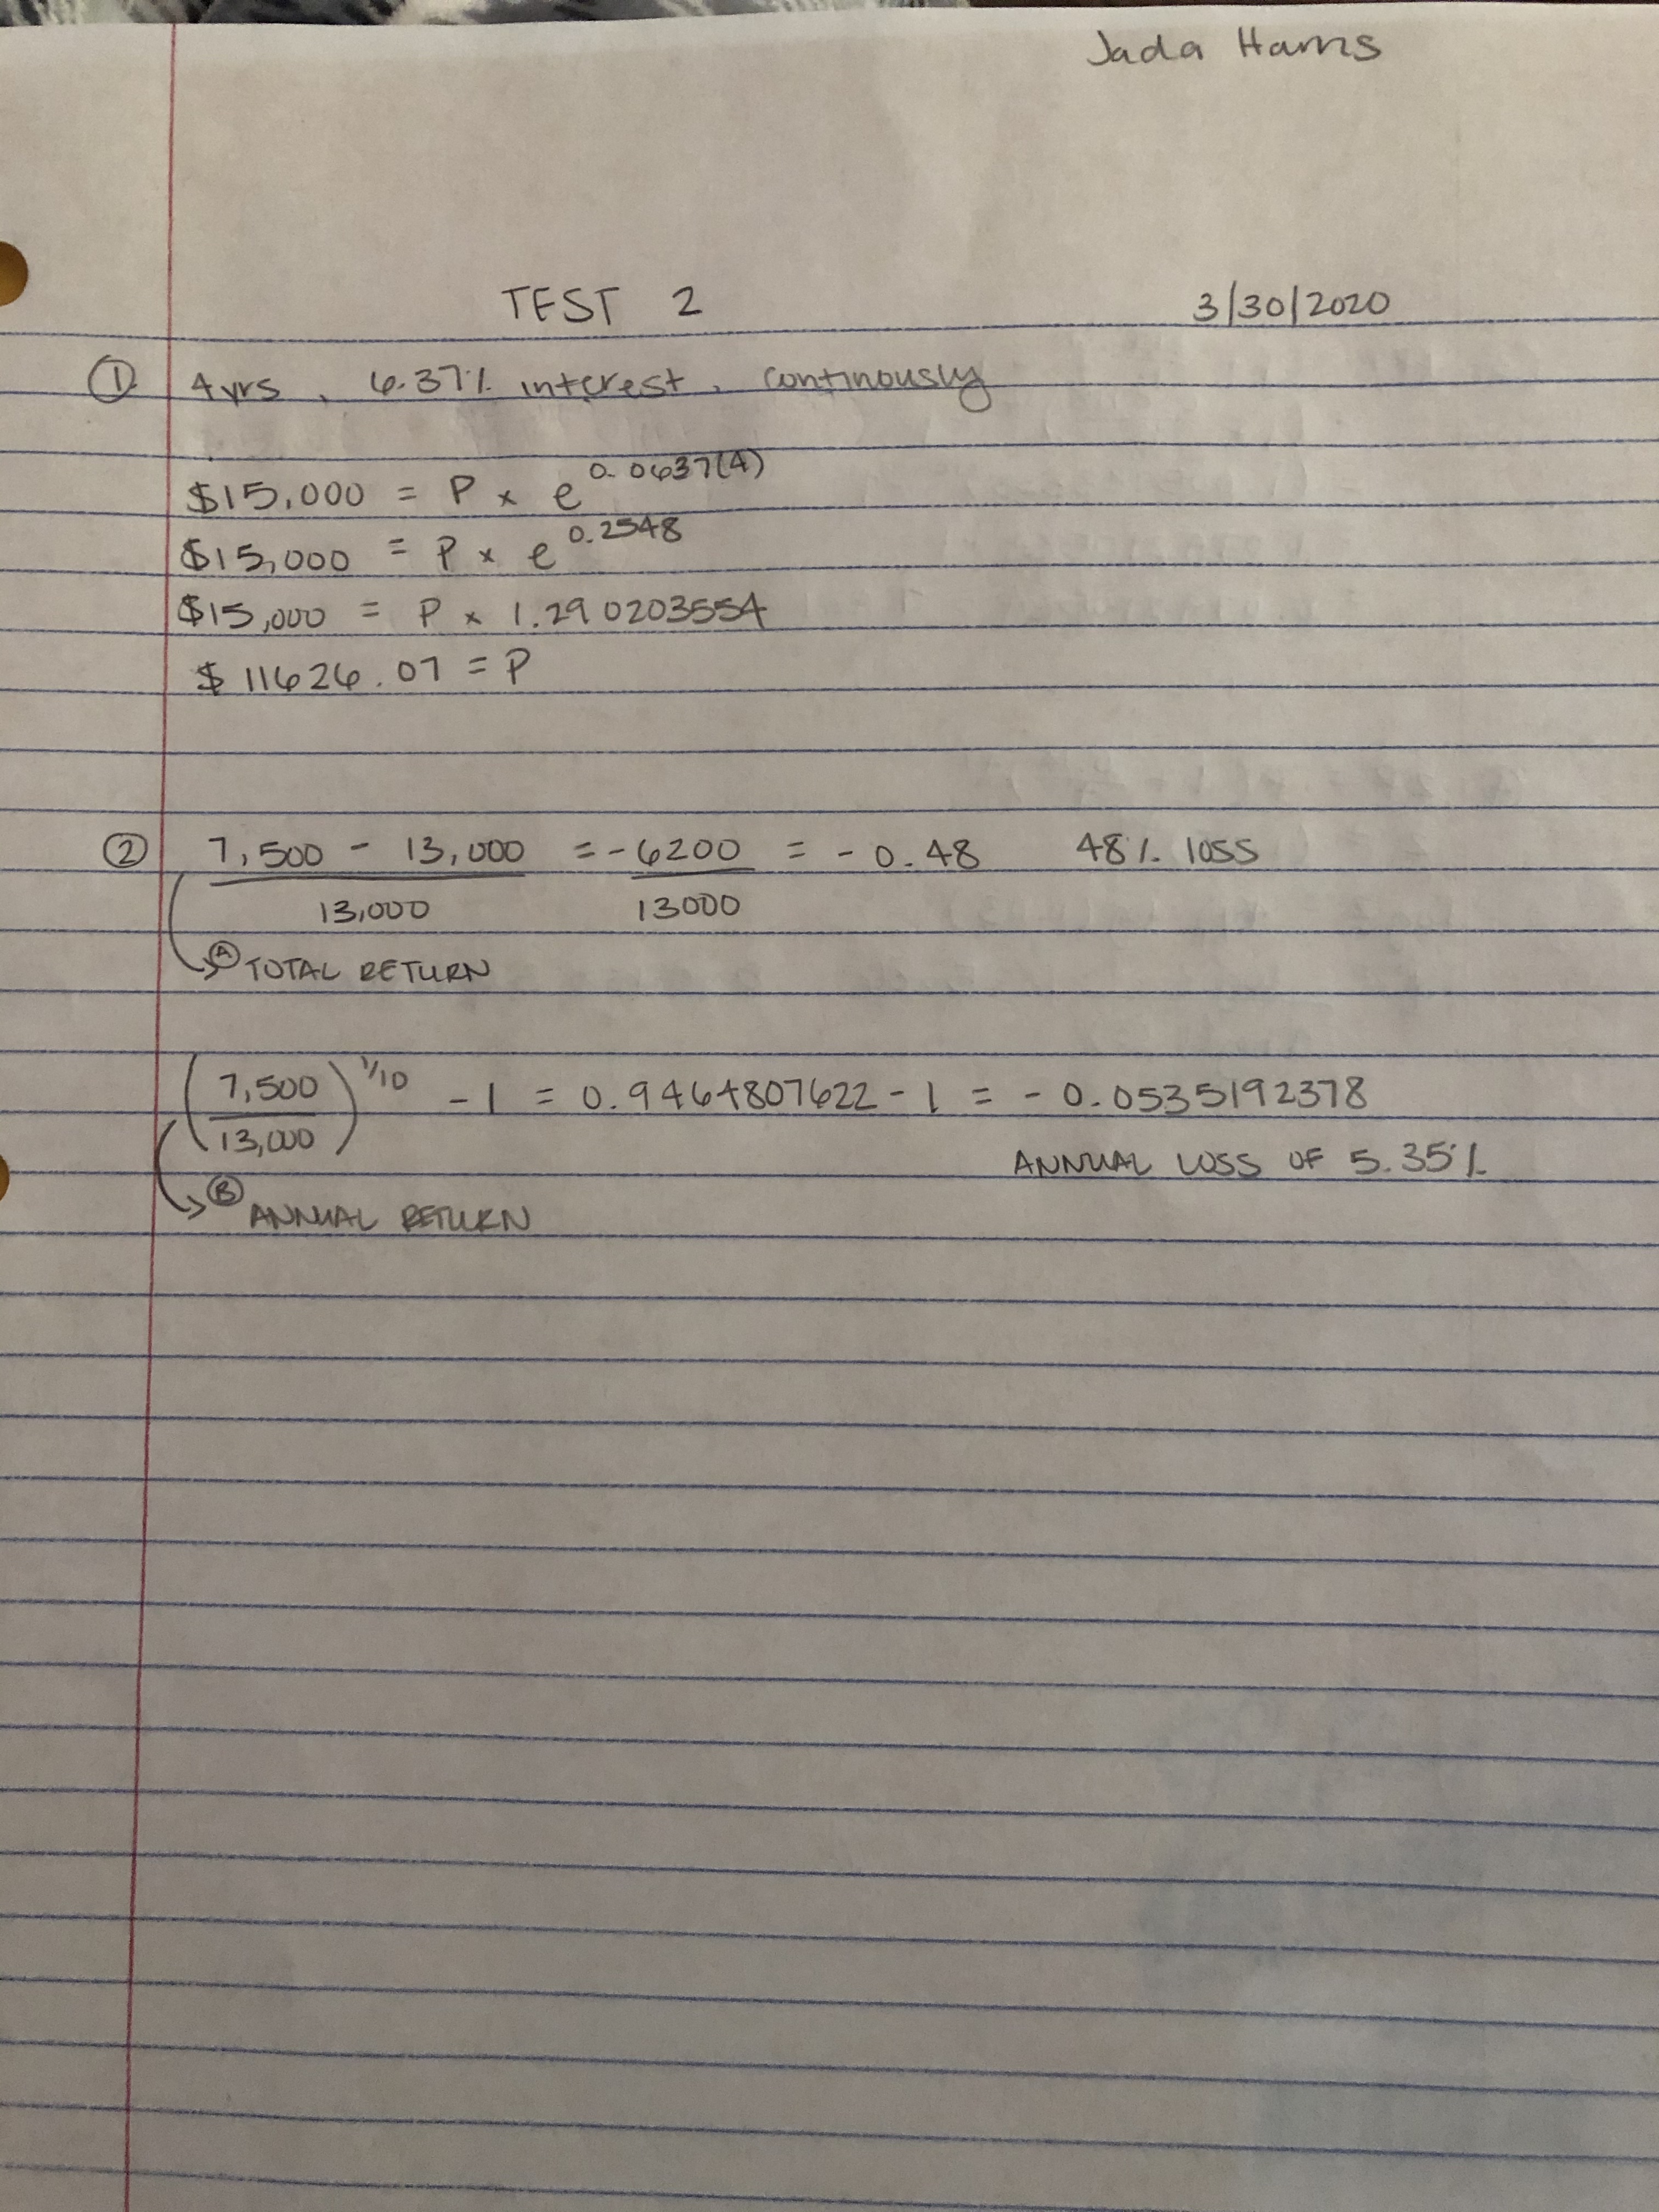 Jada Harris
TEST 2 3/30/2020
① 4 yrs, 6.37% interest, continously
$15,000 = P x e^0.0637(4)
$15,000 = P x e^0.2548
$15,000 = P x 1.290203554
$11626.07 = P
② 7,500 - 13,000 = -6200 = -0.48 48% loss
13,000 13000
Ⓐ TOTAL RETURN
(7,500/13,000)^1/10 - 1 = 0.9464807622 - 1 = -0.0535192378
ANNUAL LOSS OF 5.35%
Ⓑ ANNUAL RETURN